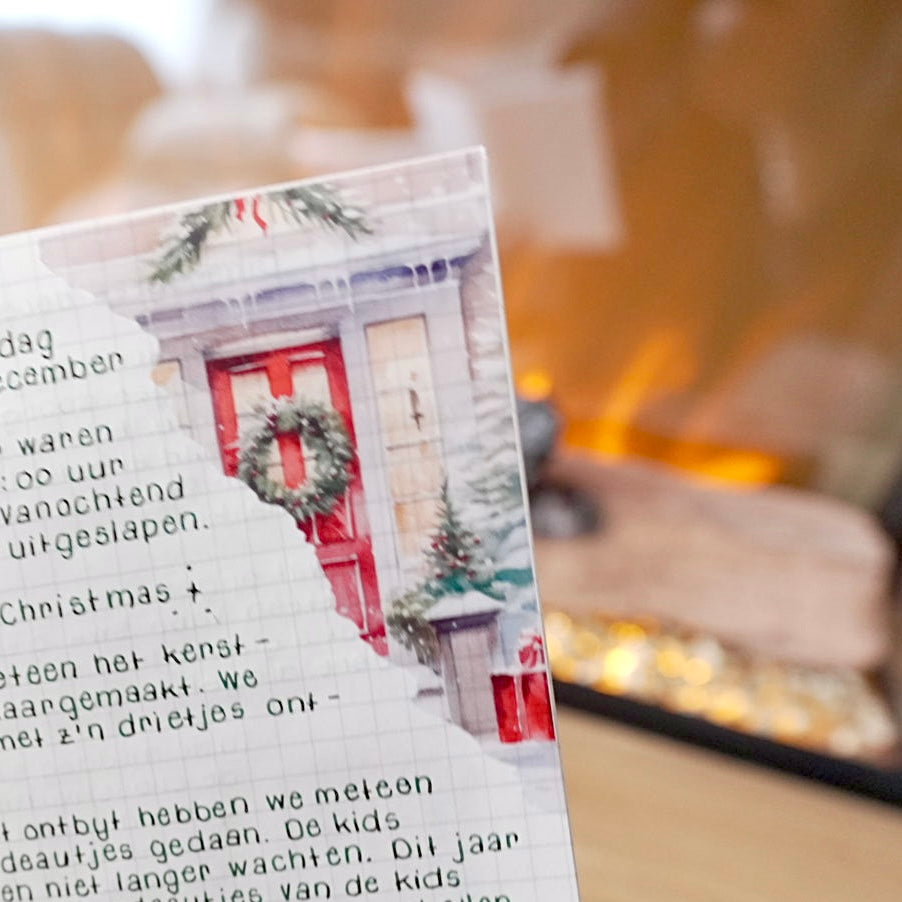 dag
cember
waren
:00 uur
vanochtend
uitgeslapen.
Christmas
teen het kerst-
aargemaakt. We
met z'n drietjes ont-
t ontbyt hebben we meteen
deautjes gedaan. De kids
en niet langer wachten. Dit jaar
deautjes van de kids